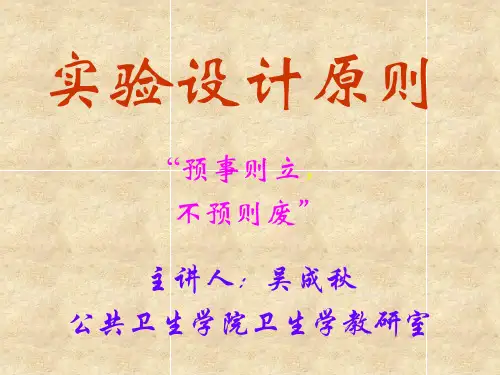 实验设计原则
“预事则立，
不预则废”
主讲人：吴成秋
公共卫生学院卫生学教研室